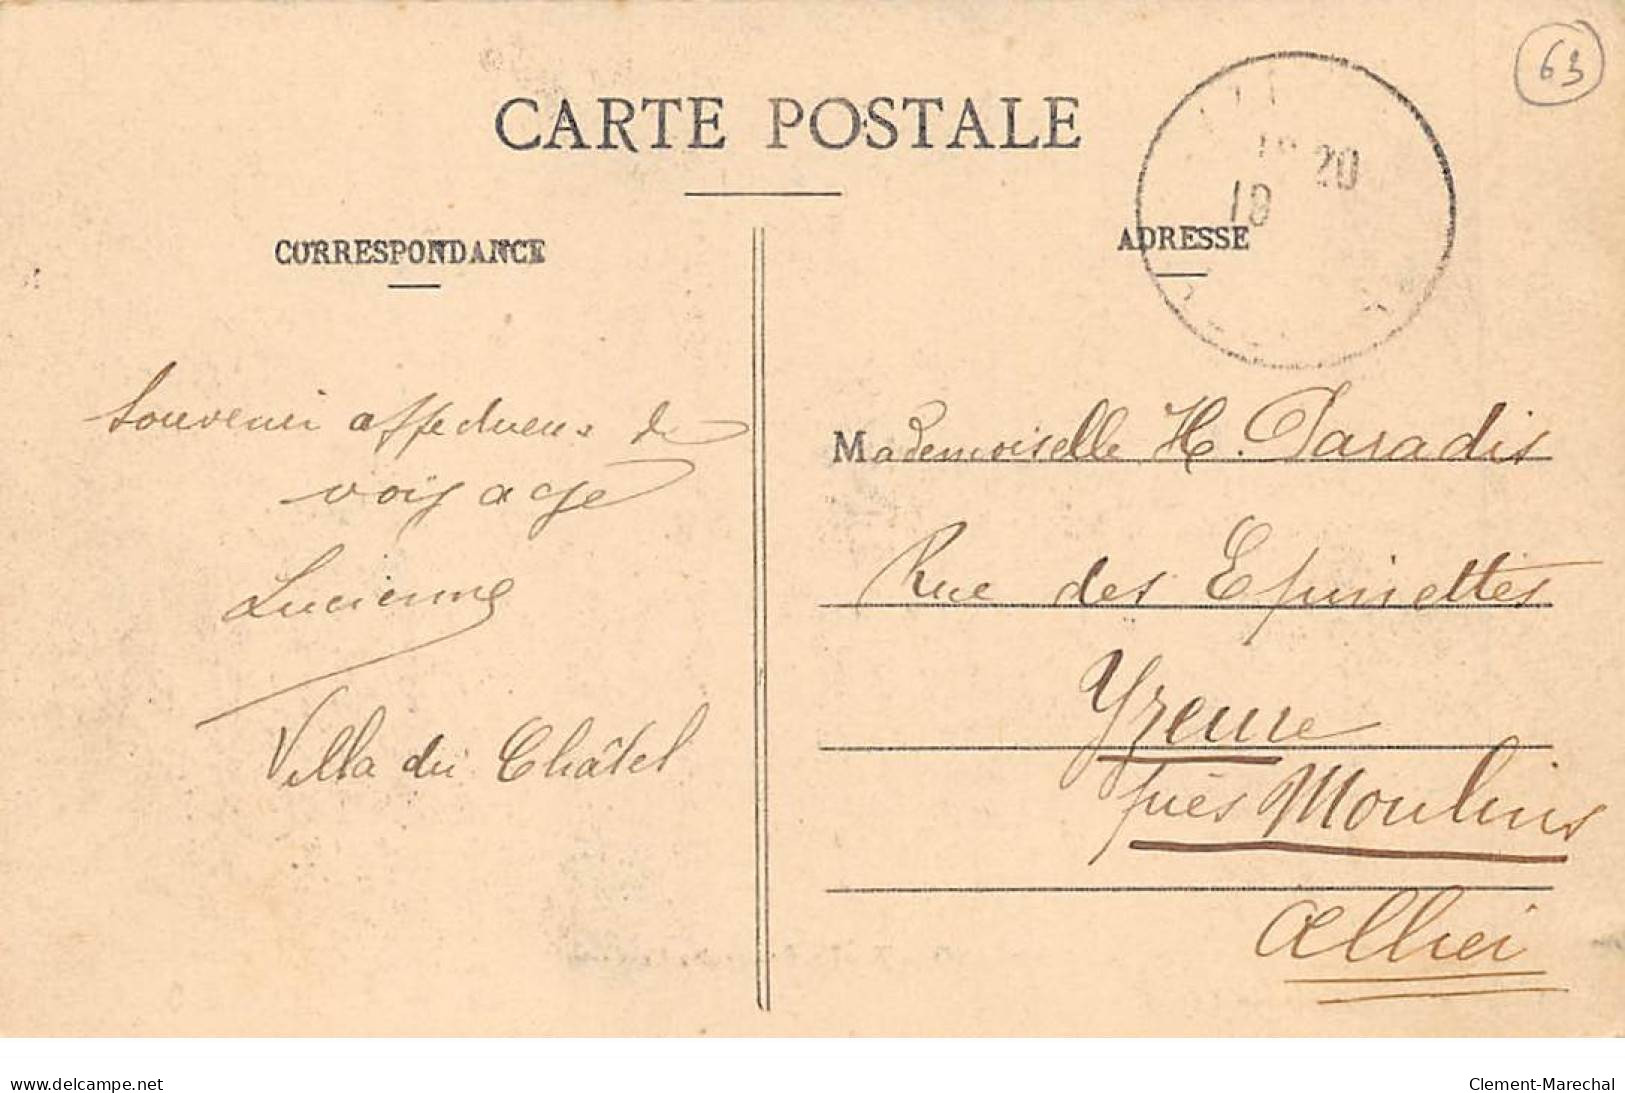 63
CARTE POSTALE
20
18
CORRESPONDANCE
ADRESSE
Souvenir affectueux de
voyage
Lucienne
Villa du Châtel
Mademoiselle H. Paradis
Rue des Epinettes
Yzeure
près Moulins
Allier
www.delcampe.net
Clement-Marechal